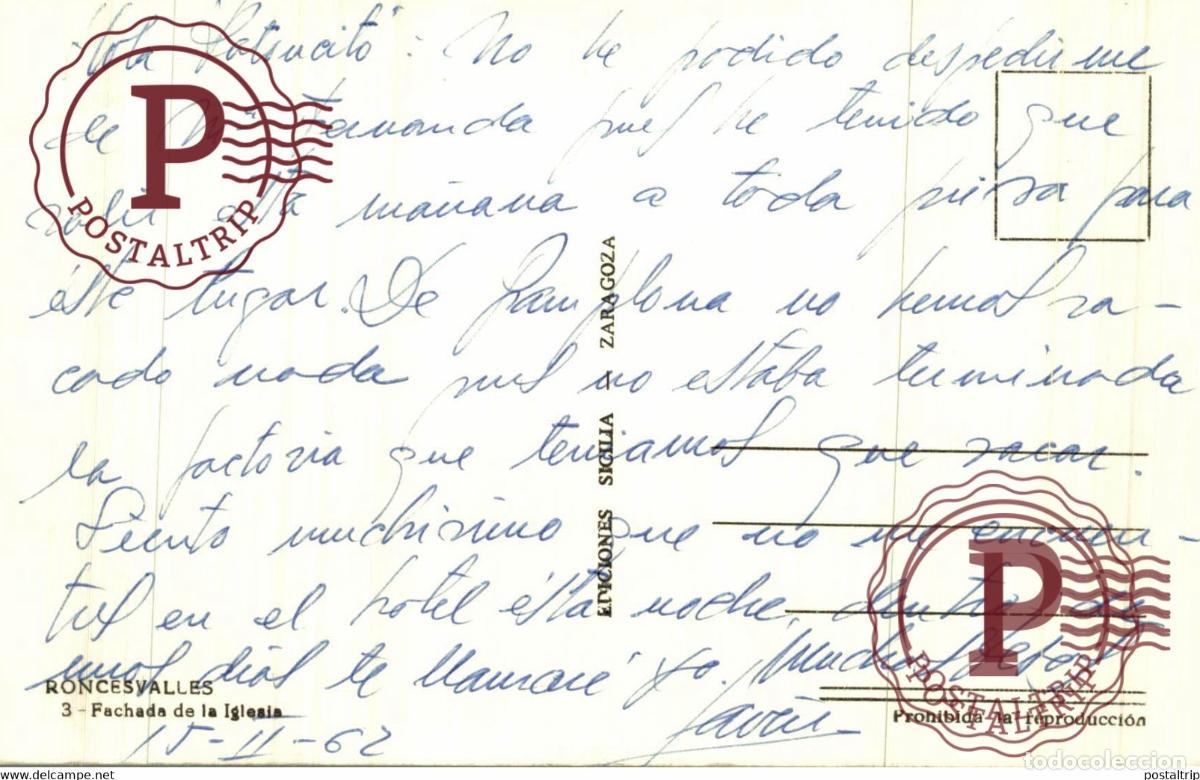 Hola "Patuncito": No he podido despedirme
de Mª Fernanda pues he tenido que
salir esta mañana a toda prisa para
éste lugar. De Pamplona no hemos sa-
cado nada pues no estaba terminada
la factoria que teniamos que sacar.
Siento muchisimo que no me encuen-
tres en el hotel ésta noche, dentro de
unos dias te llamaré yo. Muchos besos
Javier
15-II-62
RONCESVALLES
3 - Fachada de la Iglesia
EDICIONES SICILIA - ZARAGOZA
Prohibida la reproducción
P
POSTALTRIP
P
POSTALTRIP
todocoleccion
https://www.delcampe.net
postaltrip